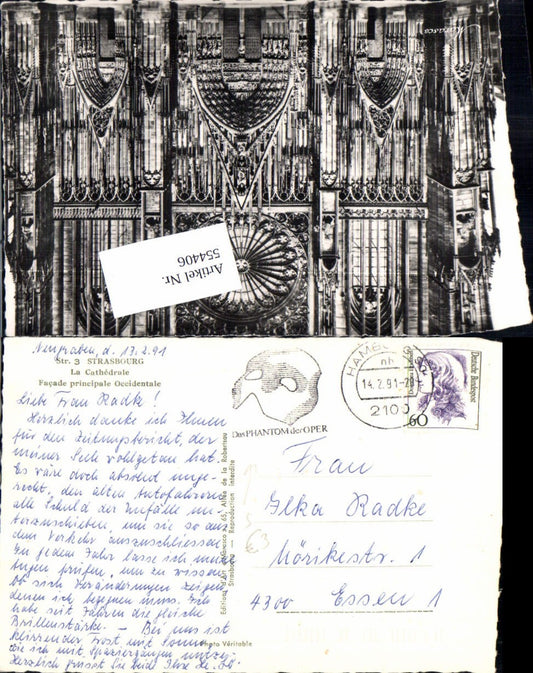 Mirasco
Artikel Nr.
554406
Neugraben, d. 13.2.91
Str. 3 STRASBOURG
La Cathédrale
Façade principale Occidentale
Liebe Frau Radke!
Herzlich danke ich Ihnen
für den Zeitungsbericht, der
meiner Seele wohlgetan hat.
Es wäre doch absolut unge-
recht, den alten Autofahrern
alle Schuld der Unfälle un-
terzuschieben, um sie so aus
dem Verkehr auszuschliessen.
In jedem Jahr lasse ich meine
Augen prüfen, um zu wissen,
ob sich Veränderungen zeigen,
denen ich begegnen muss. Ich
habe seit Jahren die gleiche
Brillenstärke. - Bei uns ist
klirrender Frost mit Sonne,
die ich mit Spaziergängen nutze.
Herzlich grüsst Sie Ihre
Reproduction interdite
Strasbourg
Photo Véritable
Das PHANTOM der OPER
HAMBURG
nh
14.2.91-20
2100
60
Deutsche Bundespost
Frau
Ilka Radke
Mörikestr. 1
4300 Essen 1
63